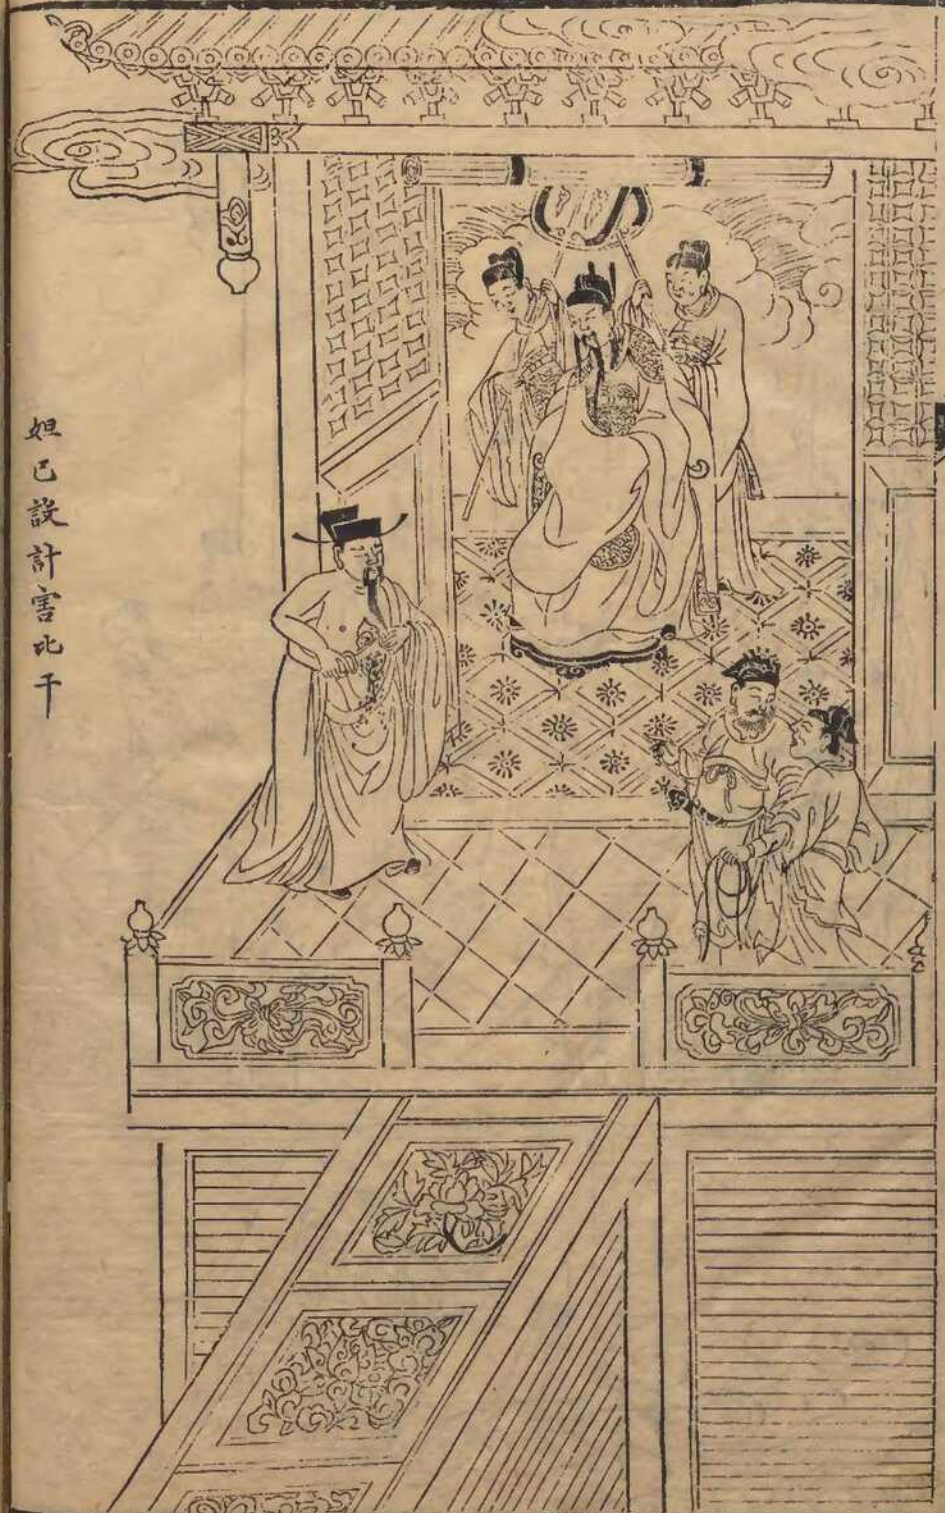 妲己設計害比干